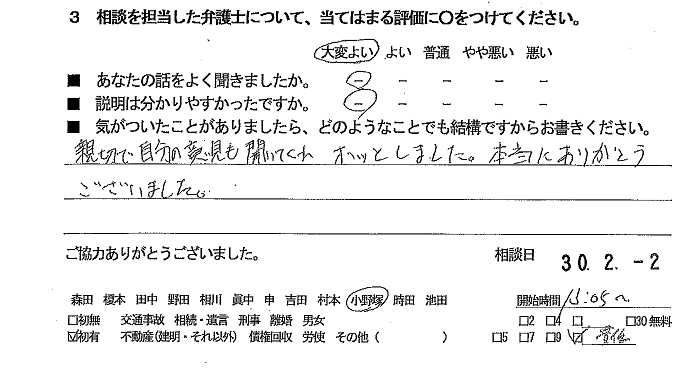 3 相談を担当した弁護士について、当てはまる評価に○をつけてください。
大変よい よい 普通 やや悪い 悪い
■ あなたの話をよく聞きましたか。 - - - - -
■ 説明は分かりやすかったですか。 - - - - -
■ 気がついたことがありましたら、どのようなことでも結構ですからお書きください。
親切で自分の意見も聞いてくれ ホッとしました。本当にありがとう
ございました。
ご協力ありがとうございました。 相談日 30.2.-2
森田 榎本 田中 野田 相川 眞中 申 吉田 村本 小野塚 時田 池田 開始時間 15:05〜
□初無 交通事故 相続・遺言 刑事 離婚 男女 □2 □4 □ □30無料
☑初有 不動産(建明・それ以外) 債権回収 労使 その他( ) □5 □7 □9 ☑